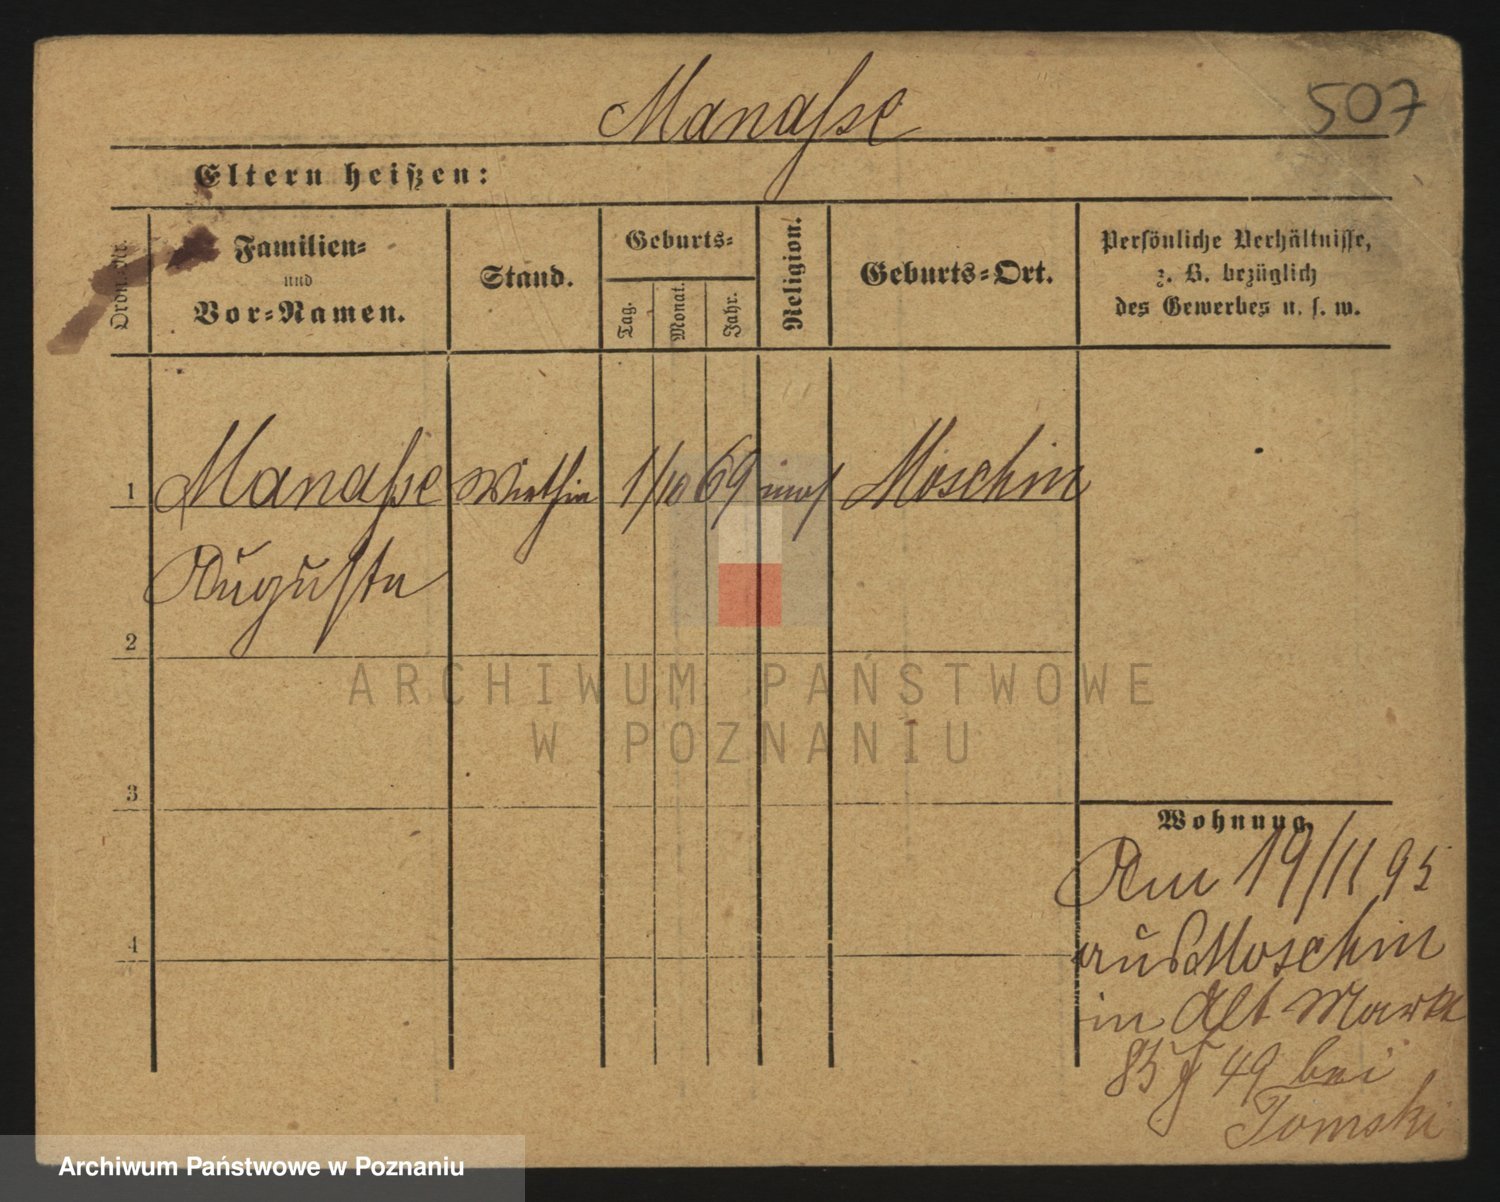 Manaſse
507
Eltern heißen:
Ordn.-Nr.
Familien-
und
Vor-Namen.
Stand.
Geburts-
Tag.
Monat.
Jahr.
Religion.
Geburts-Ort.
Persönliche Verhältnisse,
z. B. bezüglich
des Gewerbes u. s. w.
1 Manaſse 1/10 69 Moschin
Auguſta
2
ARCHIWUM PAŃSTWOWE
W POZNANIU
3
Wohnung
Am 19/11 95
aus Moschin
in Alt Markt
4
85 49 bei
Tomski
Archiwum Państwowe w Poznaniu